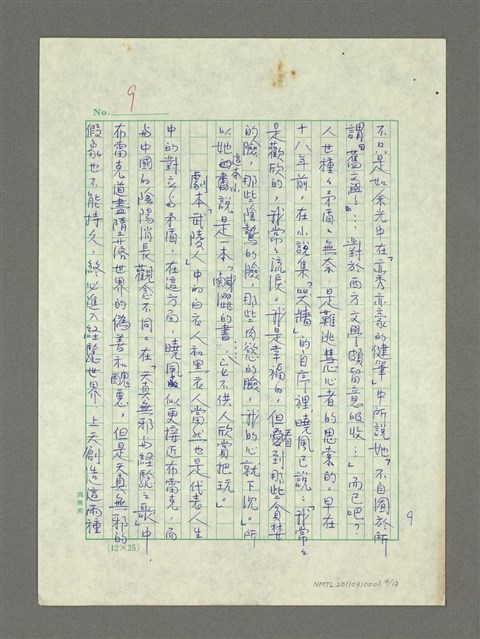 No. 9
不只是如余光中在「亦秀亦豪的健筆」中所說她「不自囿於所
謂『舊文學』…對於西方文學頗留意吸收…」而已吧？
人世種々矛盾、無奈，是難逃慧心者的思索的，早在
十八年前，在小說集「哭牆」的自序裡，曉風已說：「我常々
是歡欣的，我常々流淚。我是幸福的，但看到那些貪婪
的臉，那些陰鷙的臉，那些肉慾的臉，我的心就下沉。」所
以她說這本小書是一本「鹹澀的書，它不供人欣賞把玩。」
劇本「武陵人」中的白衣人和黑衣人當然也是代表人生
中的對立、矛盾，在這方面，曉風似更接近布雷克，而
與中國的陰陽消長觀念不同。在「天真無邪與經驗之歌」中，
布雷克道盡墮落世界的偽善和醜惡，但是天真無邪的
假象也不能持久，終必進入經驗世界，上天創造這兩種
(12×25)
9
NMTL20110310006 9/13